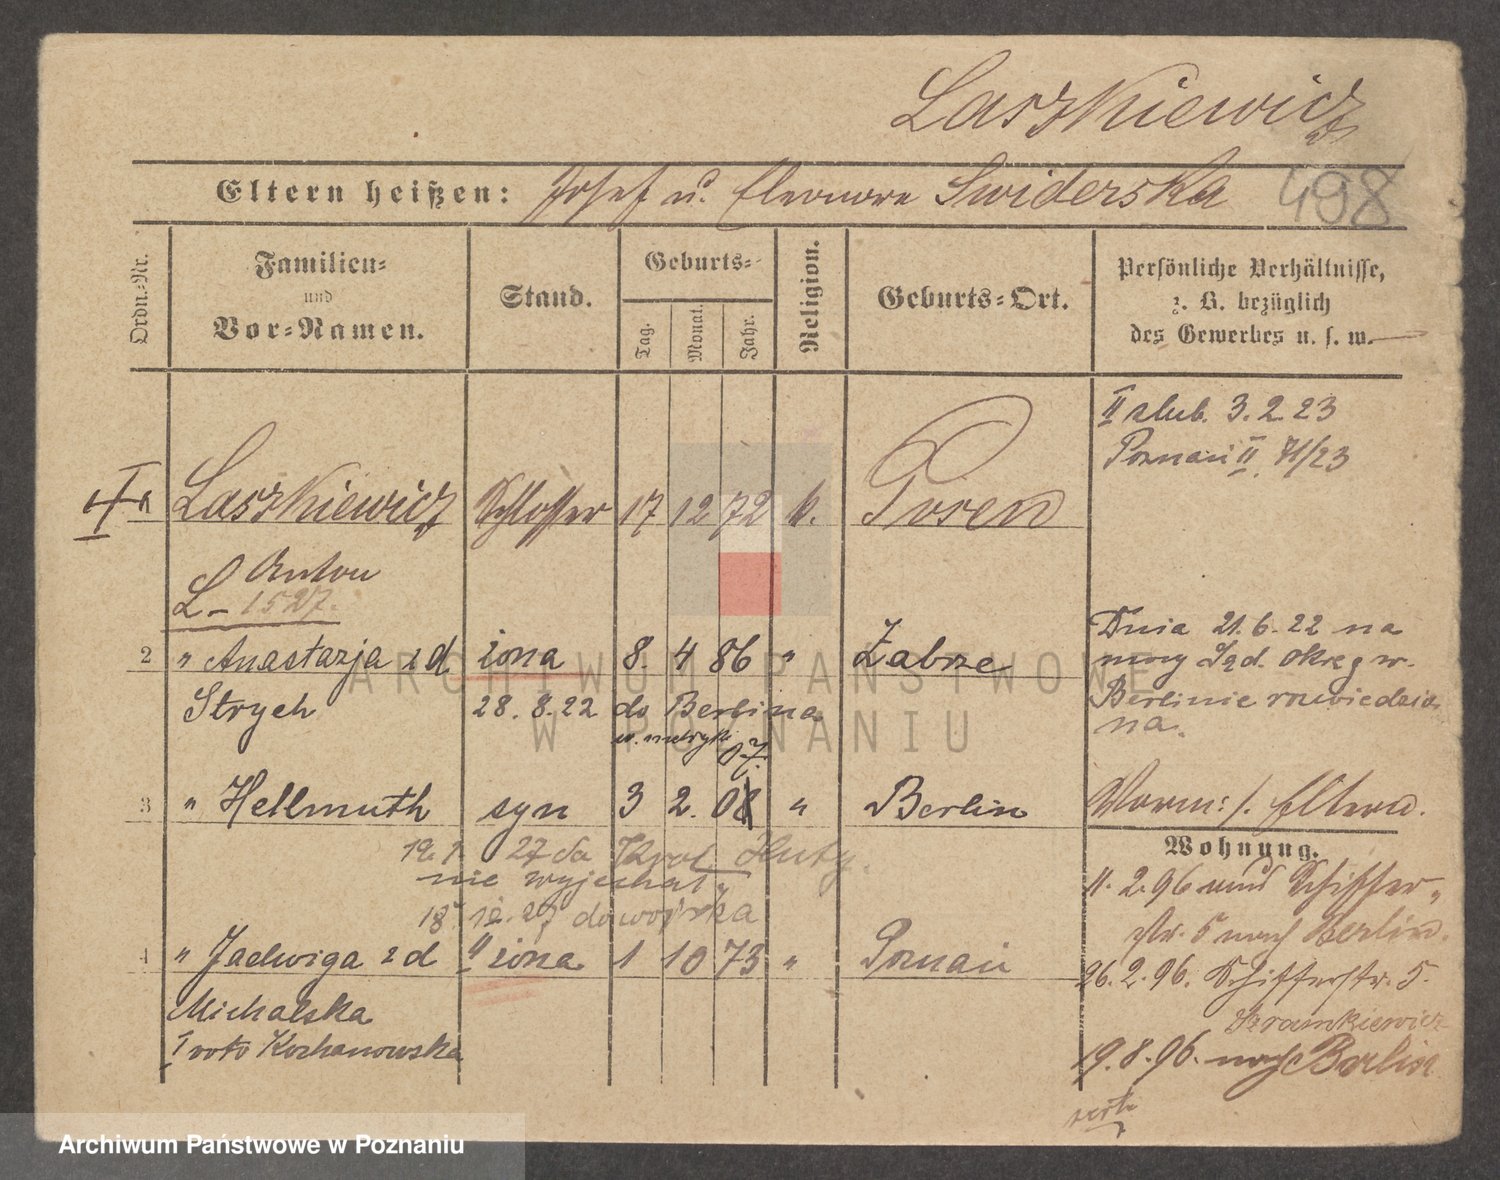 Laszkiewicz
Eltern heißen: Josef u. Eleonore Swiderska 498
Ordn.-Nr. Familien- und Vor-Namen. Stand. Geburts- Tag. Monat. Jahr. Religion. Geburts-Ort. Persönliche Verhältnisse, z. B. bezüglich des Gewerbes u. s. w.
II slub. 3. 2. 23
Poznań II 71/23
Laszkiewicz Schlosser 17 12 72 k. Posen
Anton
L- 1527.
2 " Anastazja z d żona 8. 4 86 " Zabrze
Strych 28. 8. 22 do Berlina
w. metryk 07.
Dnia 21. 6. 22 na
mocy Sąd. okręgw.
Berlinie rozwiedzio
na.
3 " Hellmuth syn 3 2. 08 " Berlin
Vorm: s. Eltern.
27 do Król Huty.
nie wyjechał
18. 12. 27 do wojska
4 " Jadwiga z d II żona 1 10 73 " Poznań
Michalska
I voto Kochanowska
Wohnung.
11. 2. 96 aus Schiffer-
str. 5 nach Berlin.
26. 2. 96. Schifferstr. 5.
19. 8. 96. nach Berlin
ARCHIWUM PAŃSTWOWE
W POZNANIU
Archiwum Państwowe w Poznaniu